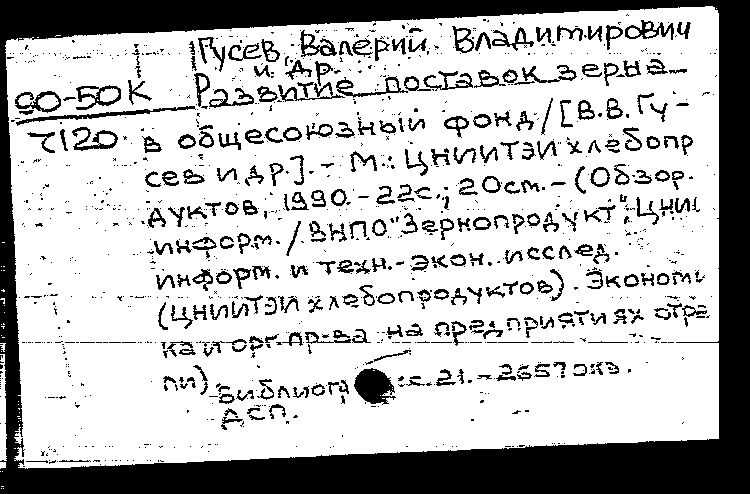 Гусев, Валерий Владимирович
и др.
90-50К Развитие поставок зерна
7120 в общесоюзный фонд/[В.В.Гу-
сев и др.].- М.: ЦНИИТЭИ хлебопр
дуктов, 1990.-22с.; 20см.-(Обзор.
информ./ВНПО"Зернопродукт", ЦНИИ
информ. и техн.-экон. исслед.
(ЦНИИТЭИ хлебопродуктов). Экономи
ка и орг. пр-ва на предприятиях отра
ли).
Библиогр :с.21.-2657 экз.
ДСП.